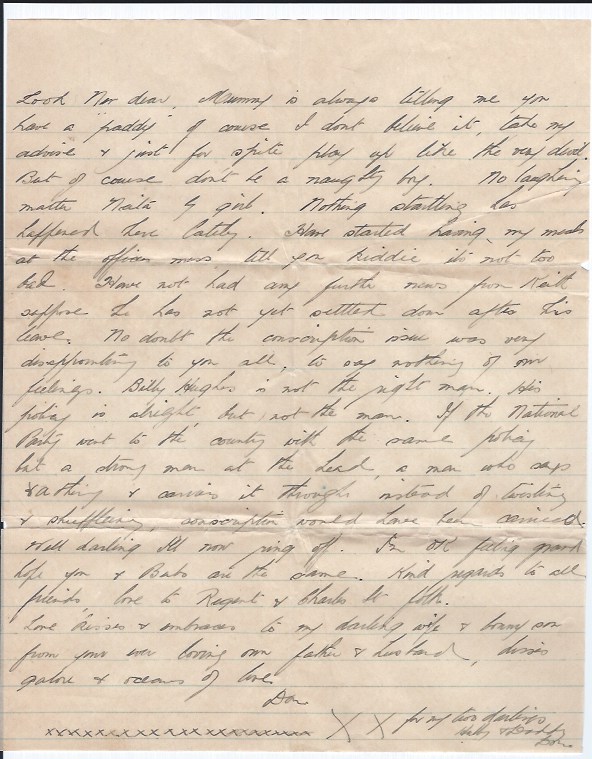 Look Nor dear, Mummy is always telling me you
have a "paddy" of course I dont believe it, take my
advise & just for spite play up like the very devil.
But of course dont be a naughty boy. No laughing
matter girl. Nothing startling has
happened here lately. Have started having my meals
at the officers mess tell you kiddie its not too
bad. Have not had any further news from Keith
suppose he has not yet settled down after his
leave. No doubt the conscription issue was very
disappointing to you all, to say nothing of our
feelings. Billy Hughes is not the right man. His
policy is alright, but not the man. If the National
Party went to the country with the same policy
but a strong man at the head, a man who says
a thing & carries it through instead of twisting
& shuffleing, conscription would have been carried.
Well darling Ill now ring off. Im OK feling grand
hope you & Babs are the same. Kind regards to all
friends, love to Regent & Charles St folk.
Love kisses & embraces to my darling wife & bonny son
from your ever loving own father & husband, kisses
galore & oceans of love
Don
xxxxxxxxxxxxxxxxxxxx X X for my two darlings
Hubby & Daddy
Don